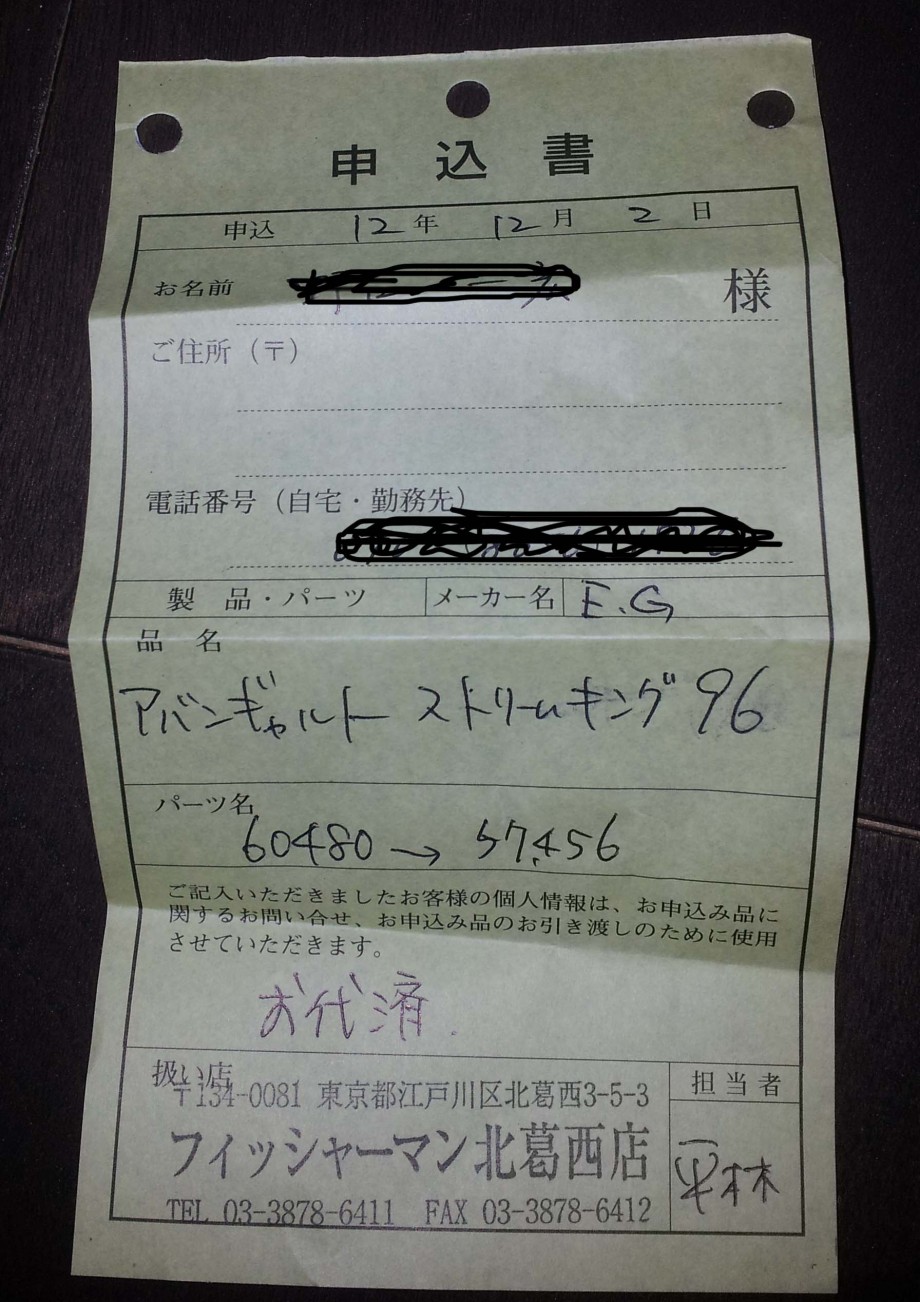 申込書
申込 12年 12月 2日
お名前 様
ご住所（〒）
電話番号（自宅・勤務先）
製品・パーツ メーカー名 E.G
品名
アバンギャルト ストリームキング 96
パーツ名
60480 → 57,456
ご記入いただきましたお客様の個人情報は、お申込み品に
関するお問い合せ、お申込み品のお引き渡しのために使用
させていただきます。
お代済.
扱い店 担当者
〒134-0081 東京都江戸川区北葛西3-5-3
フィッシャーマン北葛西店
TEL 03-3878-6411 FAX 03-3878-6412